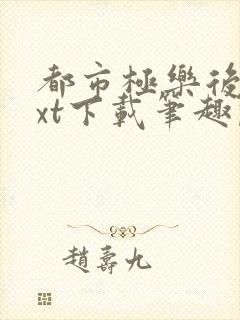 都市極樂後
xt下載筆趣
趙壽九